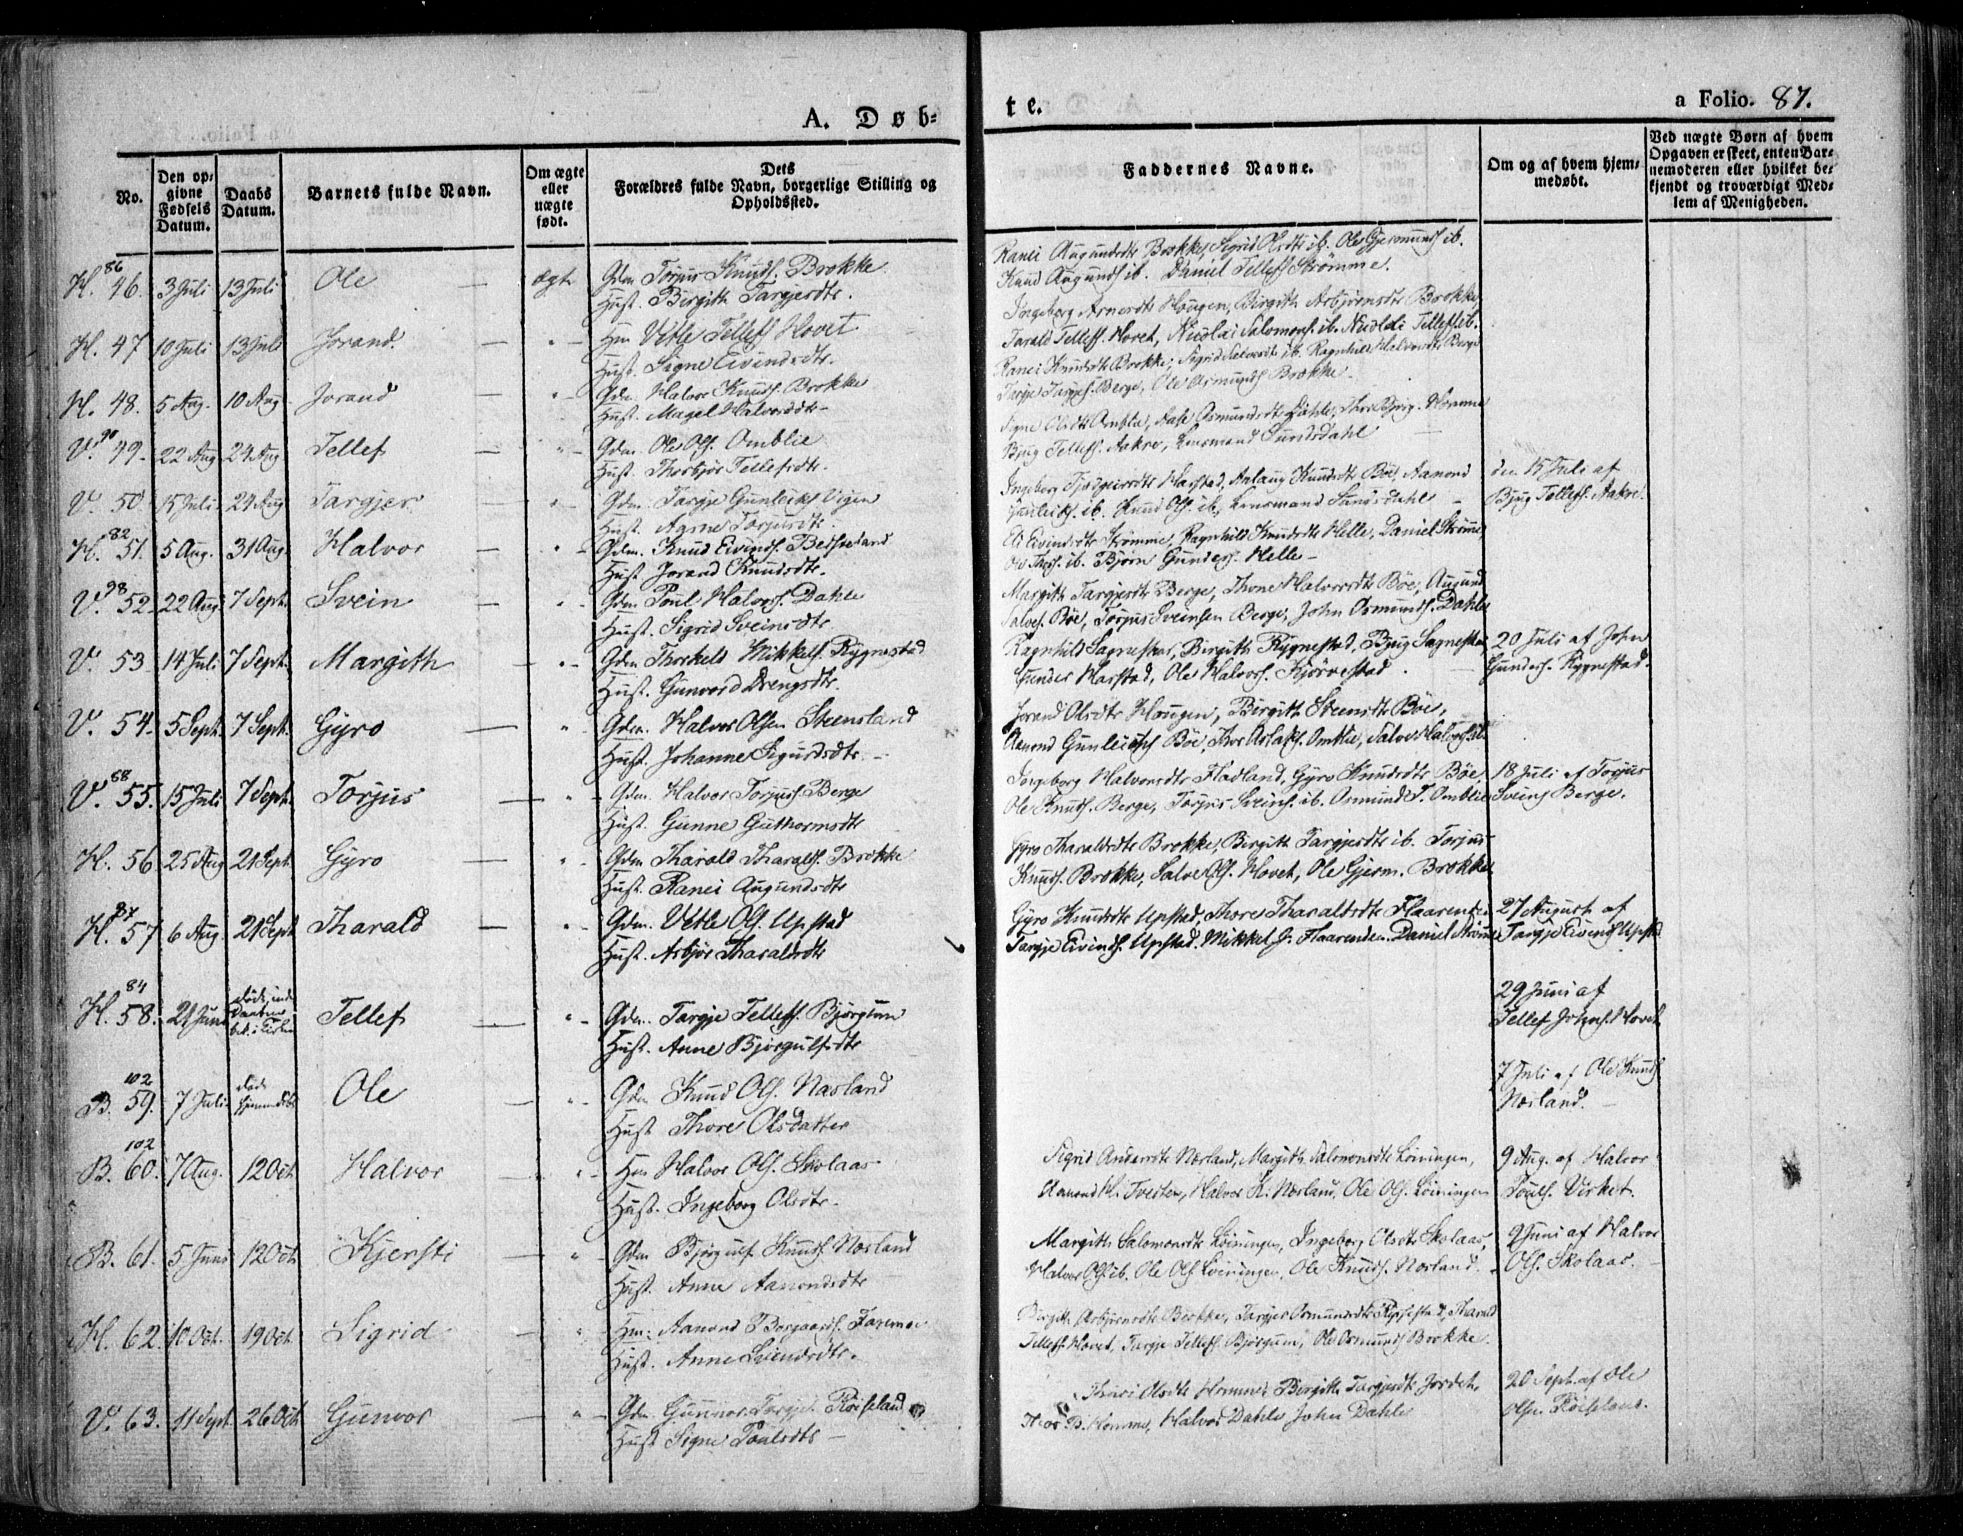 A. Døb-
te.
a Folio. 87.
No.
Den op-
givne
Fødsels
Datum.
Daabs
Datum.
Barnets fulde Navn.
Om ægte
eller
uægte
født.
Dets
Forældres fulde Navn, borgerlige Stilling og
Opholdssted.
Faddernes Navne.
Om og af hvem hjem-
medøbt.
Ved uægte Børn af hvem
Opgaven er skeet, enten Bar-
nemoderen eller hvilket be-
kjendt og troværdigt Med-
lem af Menigheden.
86
H. 46. 3 Juli 13 Juli Ole — ægte Gdm. Torjus Knuds. Brokke
Hust. Birgith Targjerdtr.
Ranei Augundsdtr Brokke, Sigrid Olsdtr ib. Ole Gjermunds ib.
Knud Augunds ib. Daniel Tellefs Strømme.
H. 47 10 Juli 13 Juli Jorand. — " — Hm Vetle Tellefs Hovet
Hust. Signe Eivindsdtr.
Ingeborg Arnerdtr Hougen, Birgith Asbjørnsdtr Brokke
Tarald Tellefs. Hovet, Nicolai Salomons. ib. Nicolai Tellefs. ib.
H. 48. 5 Aug. 10 Aug Jorand — " — Gdm. Halvor Knuds. Brokke
Hust. Magel Halvorsdtr —
Ranei Knudsdtr Brokke, Sigrid Salvesdtr ib. Ragnhild Halvorsdtr Berge
Tarje Tarjes. Berge, Ole Osmunds Brokke.
90
V. 49. 22 Aug 24 Aug Tellef — " — Gdm. Ole Ols. Omblie
Hust. Thorbjør Tellefsdtr.
Signe Olsdtr Omblie, Aase Osmundsdtr Dahle, Thor Bjug. Homme
Bjug Tellefs. Aakre, Lensmand Sundsdahl
V. 50. 15 Juli 24 Aug Targjer — " — Gdm. Tarje Gunleiks Vigen
Hust. Agnne Torjusdtr.
Ingeborg Harstad, Aslaug Knudsdtr Bøe, Aamond
Gunleiks. ib. Knud Ols. ib., Lensmand Sundsdahl —
den 15 Juli af
Bjug Tellefs. Aakre.
82
H. 51. 5 Aug. 31 Aug. Halvor — " — Gdm. Knud Eivinds. Besteland
Hust Jorand Knudsdtr.
Eli Eivindsdtr Strømme, Ragnhild Knudsdtr Helle, Daniel Strømme
Ole Thors. ib. Bjørn Gunders. Helle —
98
V. 52 22 Aug. 7 Sept. Svein — " — Gdm Poul Halvors. Dahle
Hust. Sigrid Sveinsdtr
Margith Targjerdtr Berge, Thone Halvorsdtr Bøe, Augund
Salves. Bøe, Torjus Sveinsen Berge, John Osmunds. Dahle
V. 53 14 Juli 7 Sept. Margith — " — Gdm Thorkeld Mikkels. Rygnestad
Hust. Gunvord Drengsdtr.
Ragnhild Sagneskar, Birgith Rygnestad, Bjug Sagneskar
Gunder Harstad, Ole Halvors. Kjørvestad.
20 Juli af John
Gunders. Rygnestad.
V. 54. 5 Sept. 7 Sept. Gyro — " Gdm. Halvor Olsen Steensland
Hust. Johanne Sigurdsdtr. —
Jorand Olsdtr Hougen, Birgith Steensdtr Bøe,
Aanond Gunleichs Bøe, Thor Aslaks. Omblie, Salve Halvors. ib.
88
V. 55. 15 Juli 7 Sept. Torjus — " Gdm. Halvor Torjus. Berge
Hust. Gunne Guthormsdtr
Ingeborg Halvorsdtr Fladland, Gyro Knudsdtr Bøe,
Ole Knuds. Berge, Torjus Sveins. ib. Osmund T. Omblie
18 Juli af Torjus
Sveins Berge.
H. 56 25 Aug 21 Sept. Gyro — " Gdm Tharald Tharalds. Brokke
Hust. Ranei Augundsdtr
Gyro Tharaldsdtr Brokke, Birgith Targjerdtr ib. Torjus
Knuds. Brokke, Salve Ols. Hovet, Ole Gjerm. Brokke
87
H. 57 6 Aug. 21 Sept Tharald — " — Gdm. Vetle Ols. Upstad
Hust. Asbjør Tharaldsdtr
Gyro Knudsdtr Upstad, Thore Tharaldsdtr Flaarenden
Targje Eivinds. Upstad. Mikkel J: Flaarenden. Daniel Strømme
27 August af
Targje Eivinds Upstad.
84
H. 58. 21 Juni døde, inden
Daaben
bek. i Kirken Tellef — " — Gdm. Targje Tellefs. Bjørgum
Hust. Anne Bjørgulfsdtr
29 Juni af
Tellef Johns. Hovet
102
B. 59. 7 Juli. døde
hjemmedøbt Ole — " — Gdm Knud Ols. Nasland
Hust Thore Olsdatter
7 Juli af Ole Knuds.
Næsland. —
102
B. 60. 7 Aug. 12 Oct. Halvor — " — Hm Halvor Ols. Skolaas
Hust. Ingeborg Olsdtr.
Sigrid Andersdtr Næsland, Margith Salomonsdtr Løiningen,
Aanond H. Tvesten, Halvor K. Næsland, Ole Ols. Løiningen
9 Aug. af Halvor
Pouls. Virket.
B. 61. 5 Juni 12 Oct Kjersti — " — Gdm Bjørgulf Knuds. Næsland
Hust. Anne Aanondsdtr
Margith Salomonsdtr Løiningen, Ingeborg Olsdtr Skolaas,
Halvor Ols. ib. Ole Ols Løiningen, Ole Knuds. Næsland.
9 Juni af Halvor
Ols. Skolaas. —
H. 62. 10 Oct. 19 Oct. Sigrid — Hm: Aanond Borgaards. Faremoe
Hust. Anne Svendsdtr.
Birgith Asbjørnsdtr Brokke, Targjer Osmundsdtr Rysestad, Tharald
Tellefs. Hovet, Targje Tellefs. Bjørgum, Ole Osmunds Brokke.
V. 63. 11 Sept. 26 Oct. Gunvor — " — Gdm. Gunnar Targjes. Røiseland
Hust Signe Poulsdtr —
Thori Olsdtr Homme, Birgith Targjerdtr Jordet,
Thor B. Homme, Halvor Dahle John Dahle
20 Sept. af Ole
Olsn. Røiseland.